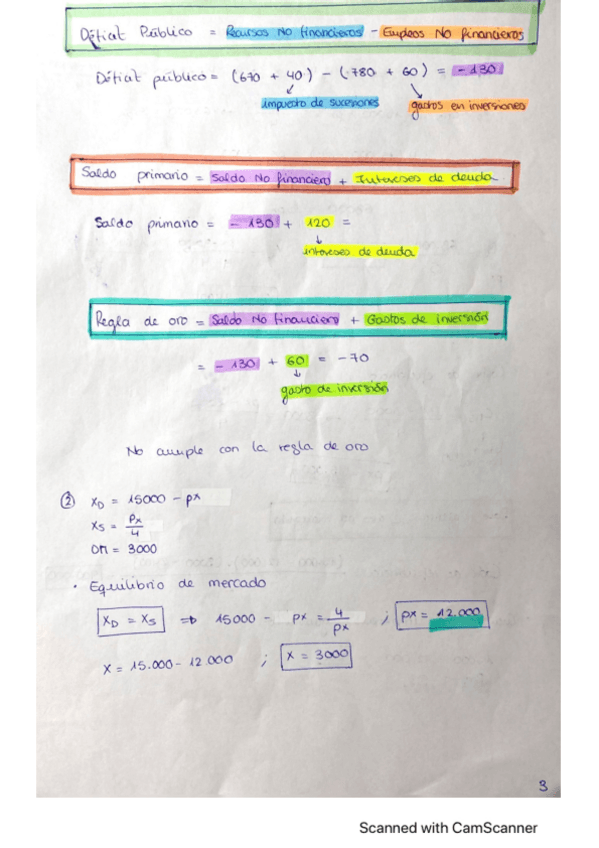 Déficit Público = Recursos No financieros - Empleos No financieros
Déficit público = (670 + 40) - (780 + 60) = -130
impuesto de sucesiones
gastos en inversiones
Saldo primario = Saldo No financiero + Intereses de deuda
Saldo primario = -130 + 120 =
intereses de deuda
Regla de oro = Saldo No financiero + Gastos de inversión
= -130 + 60 = -70
gasto de inversión
No cumple con la regla de oro
② XD = 15000 - px
XS = Px/4
DM = 3000
· Equilibrio de mercado
XD = XS ⇒ 15000 - px = 4/px ; px = 12.000
X = 15.000 - 12.000 ; X = 3000
3
Scanned with CamScanner